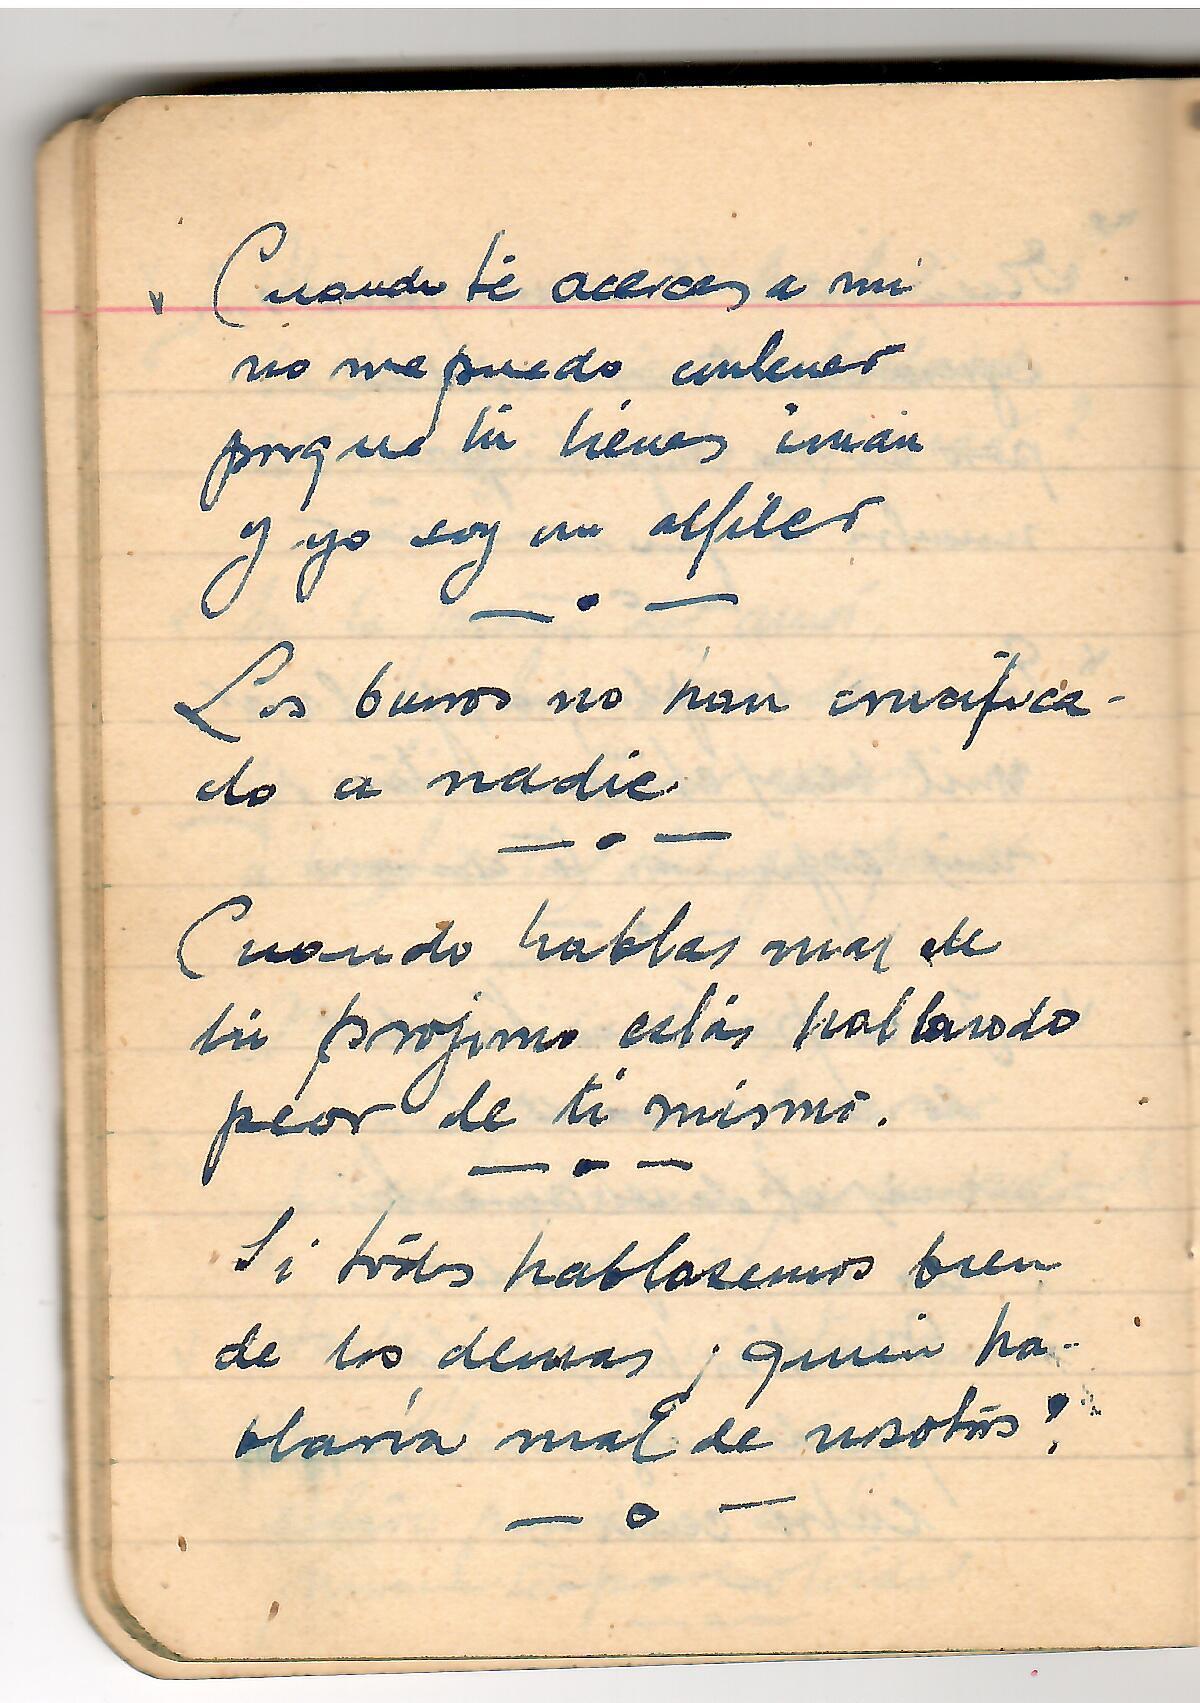 Cuando te acercas a mi
no me puedo contener
porque tú tienes imán
y yo soy un alfiler
— • —
Los burros no han crucifica-
do a nadie.
— • —
Cuando hablas mal de
tú projimo estás hablando
peor de ti mismo.
— • —
Si todos hablasemos bien
de los demas ¿quien ha-
blaría mal de nosotros?
— o —